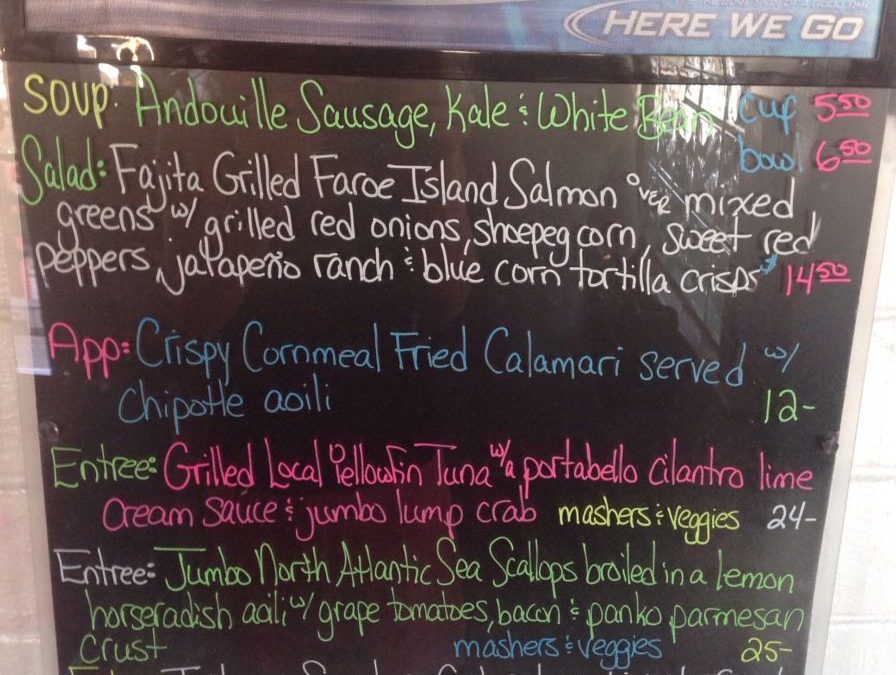 HERE WE GO
SOUP: Andouille Sausage, Kale & White Bean cup 5.50
bowl 6.50
Salad: Fajita Grilled Faroe Island Salmon OVER mixed
greens w/ grilled red onions, shoepeg corn, sweet red
peppers, jalapeño ranch & blue corn tortilla crisps $14.50
App: Crispy Cornmeal Fried Calamari served w/
Chipotle aoili 12-
Entree: Grilled Local Yellowfin Tuna w/a portabello cilantro lime
Cream Sauce & jumbo lump crab mashers & veggies 24-
Entree: Jumbo North Atlantic Sea Scallops broiled in a lemon
horseradish aoili w/ grape tomatoes, bacon & panko parmesan
crust mashers & veggies 25-